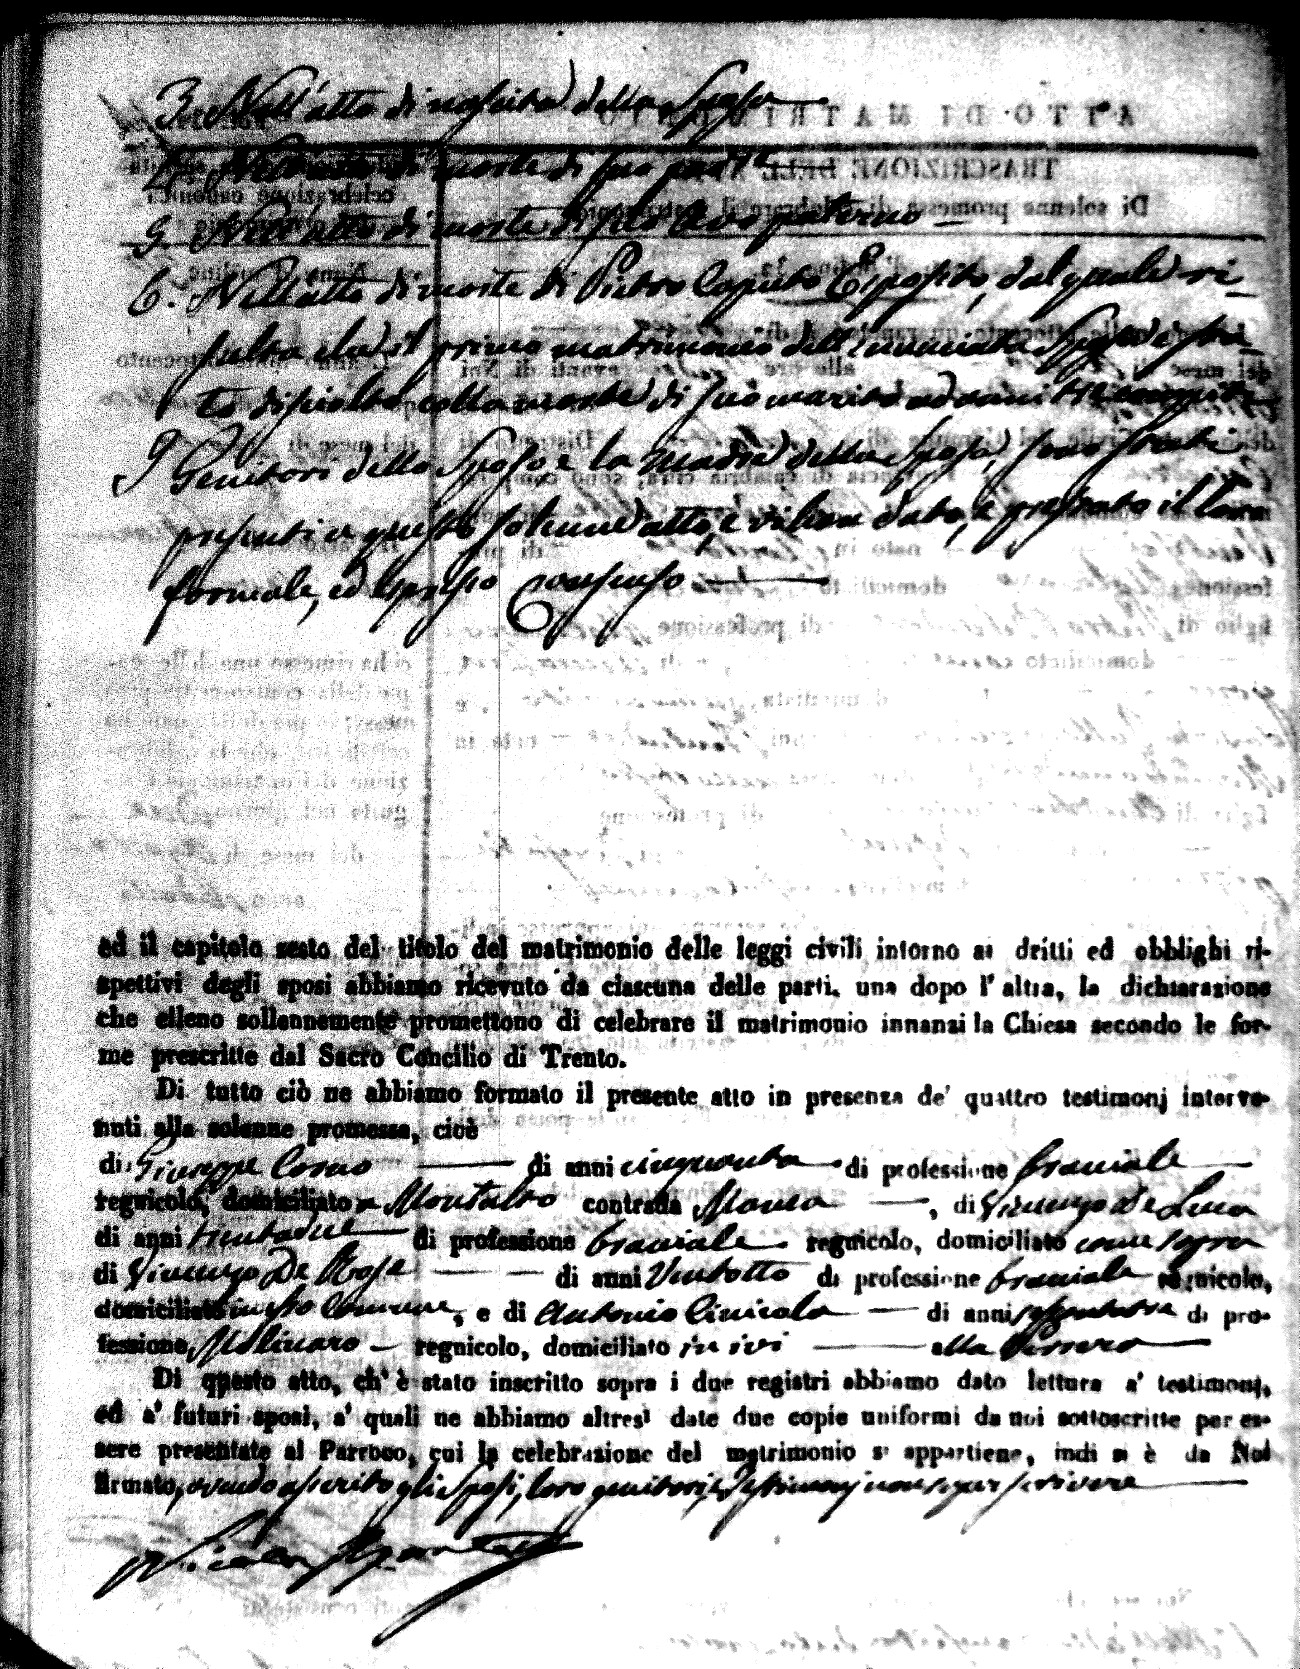 3. Nell'atto di nascita della Sposa
4. Nell'atto di morte di suo padre
5. Nell'atto di morte di suo avo paterno
6. Nell'atto di morte di Pietro Caputo Esposito, dal quale ri-
sulta che il primo matrimonio dell'enunciata Sposa è sta-
to disciolto colla morte di suo marito ad anni tre
I Genitori dello Sposo e la Madre della Sposa, sono
presenti a questo solenne atto, e vi han dato, e prestato il loro
formale, ed espresso consenso
ed il capitolo sesto del titolo del matrimonio delle leggi civili intorno ai dritti ed obblighi ri-
spettivi degli sposi abbiamo ricevuto da ciascuna delle parti, una dopo l'altra, la dichiarazione
che elleno sollennemente promettono di celebrare il matrimonio innanzi la Chiesa secondo le for-
me prescritte dal Sacro Concilio di Trento.
Di tutto ciò ne abbiamo formato il presente atto in presenza de' quattro testimonj interve-
nuti alla solenne promessa, cioè
di Giuseppe di anni cinquanta di professione bracciale
regnicolo, domiciliato a Montalto contrada , di Vincenzo De Luca
di anni trentadue di professione bracciale regnicolo, domiciliato come sopra
di Vincenzo De Rose di anni Ventotto di professione bracciale regnicolo,
domiciliato in esso Comune, e di Antonio di anni di pro-
fessione Molinaro regnicolo, domiciliato in ivi alla
Di questo atto, ch'è stato inscritto sopra i due registri abbiamo dato lettura a' testimonj,
ed a' futuri sposi, a' quali ne abbiamo altresì date due copie uniformi da noi sottoscritte per es-
sere presentate al Parroco, cui la celebrazione del matrimonio si appartiene, indi si è da Noi
firmato, avendo asserito gli Sposi, loro genitori, e Testimonj non saper scrivere